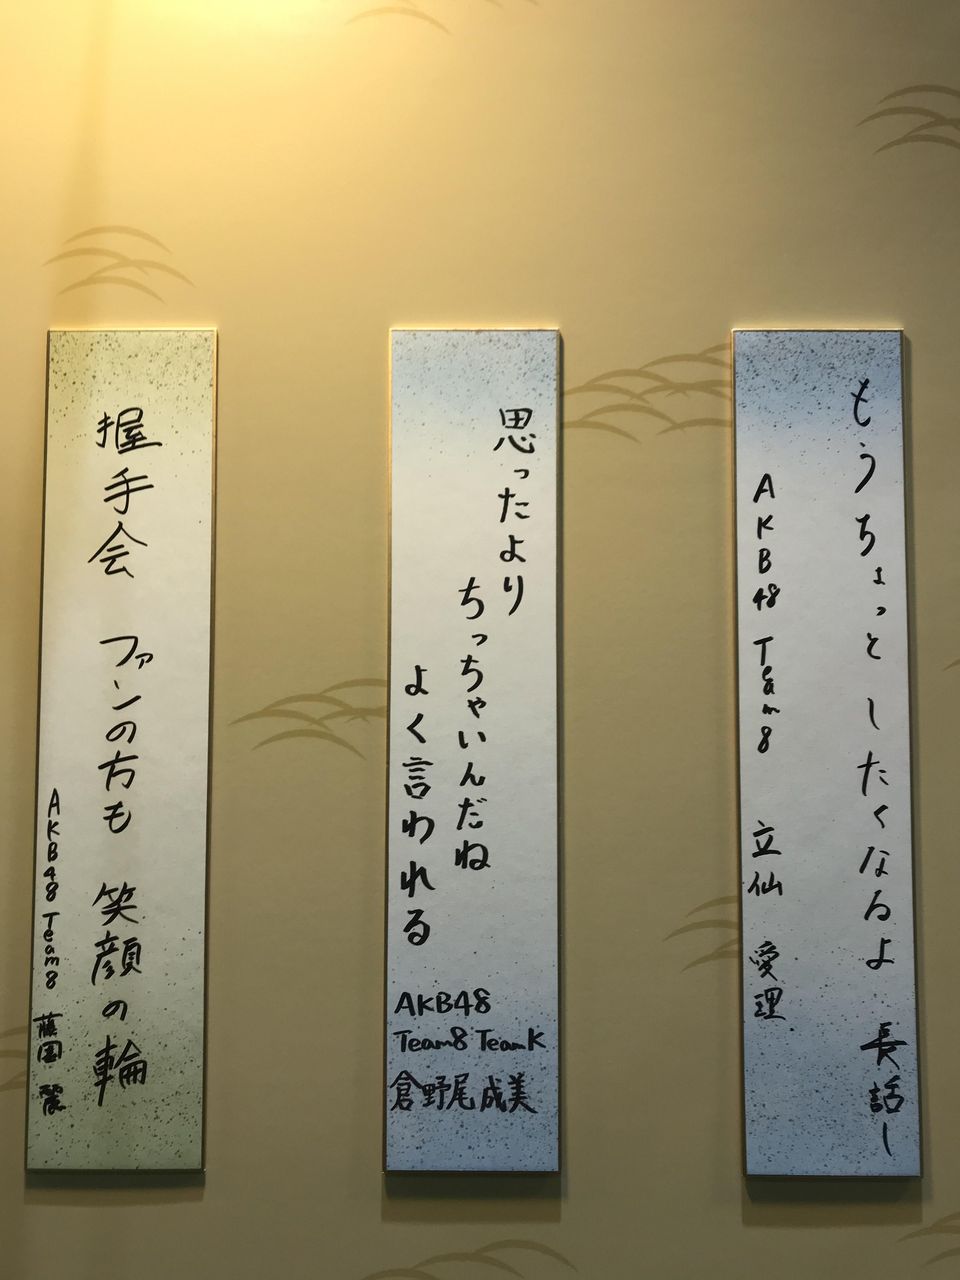 もうちょっと したくなるよ 長話し
AKB48 Team8 立仙 愛理
思ったより
ちっちゃいんだね
よく言われる
AKB48
Team8 TeamK
倉野尾 成美
握手会 ファンの方も 笑顔の輪
AKB48 Team8 藤園 麗